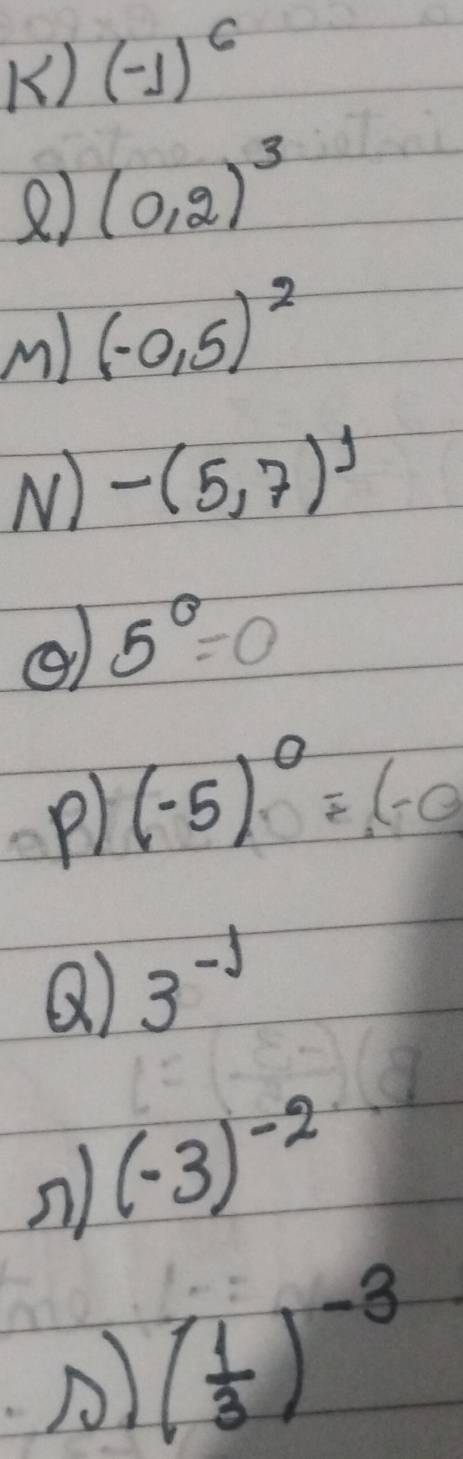 K) (-1)⁶
l) (0,2)³
M) (-0,5)²
N) -(5,7)¹
O) 5⁰=0
P) (-5)⁰ = (-0
Q) 3⁻¹
r) (-3)⁻²
s) (1/3)⁻³